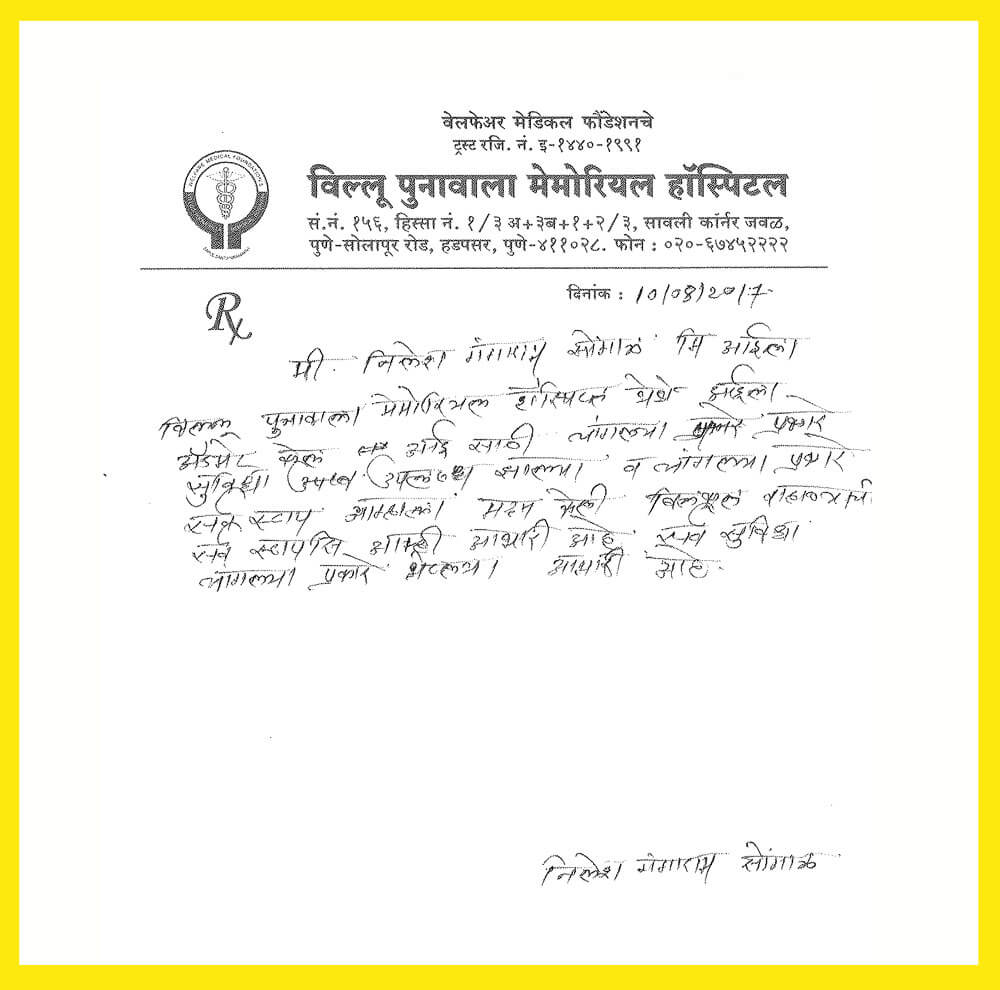 वेलफेअर मेडिकल फौंडेशनचे
ट्रस्ट रजि. नं. इ-१४४०-१९९१
WELFARE MEDICAL FOUNDATION'S
विल्लू पुनावाला मेमोरियल हॉस्पिटल
सं.नं. १५६, हिस्सा नं. १/३ अ+३ब+१+२/३, सावली कॉर्नर जवळ,
पुणे-सोलापूर रोड, हडपसर, पुणे-४११०२८. फोन : ०२०-६७४५२२२२
दिनांक : 10/08/2017
Rx
मी. निलेश गंगाराम सोंगाळ मि आईला
विल्लू पुनावाला मेमोरियल हॉस्पिटल येथे आईला
अॅडमेट केल आई साठी चांगल्या प्रकारे
सुविधा उपलब्ध झाल्या व चांगल्या प्रकारे
सर्व स्टाप आम्हाला मदत केली
सर्व स्टापचे आम्ही आभारी आहे सर्व सुविधा
चांगल्या प्रकारे भेटल्या आभारी आहे.
निलेश गंगाराम सोंगाळ